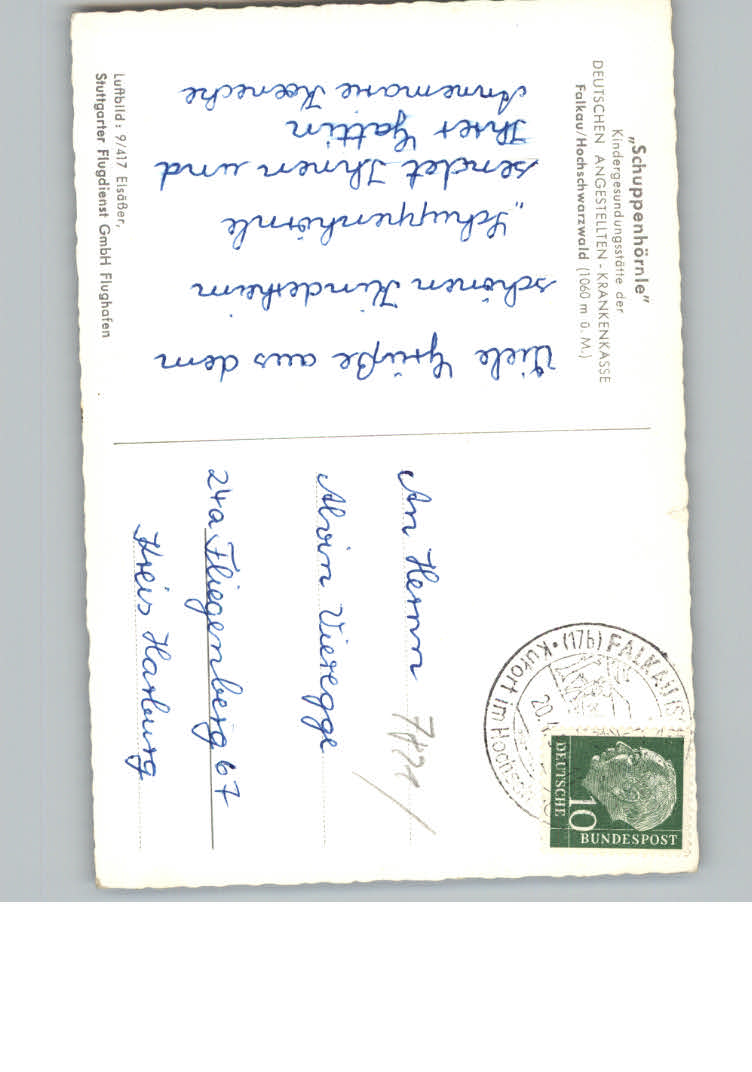 „Schuppenhörnle”
Kindergesundungsstätte der
DEUTSCHEN ANGESTELLTEN - KRANKENKASSE
Falkau/Hochschwarzwald (1060 m ü. M.)
Viele Grüße aus dem
schönen Kinderheim
„Schuppenhörnle
sendet Ihnen und
Ihrer Gattin
Annemarie Koeneche
Luftbild: 9/417 Elsäßer,
Stuttgarter Flugdienst GmbH Flughafen
An Herrn
Alvin Vieregge
24a Fliegenberg 67
Kreis Harburg
(17b) FALKAU
Kurort im
20.
DEUTSCHE
10
BUNDESPOST